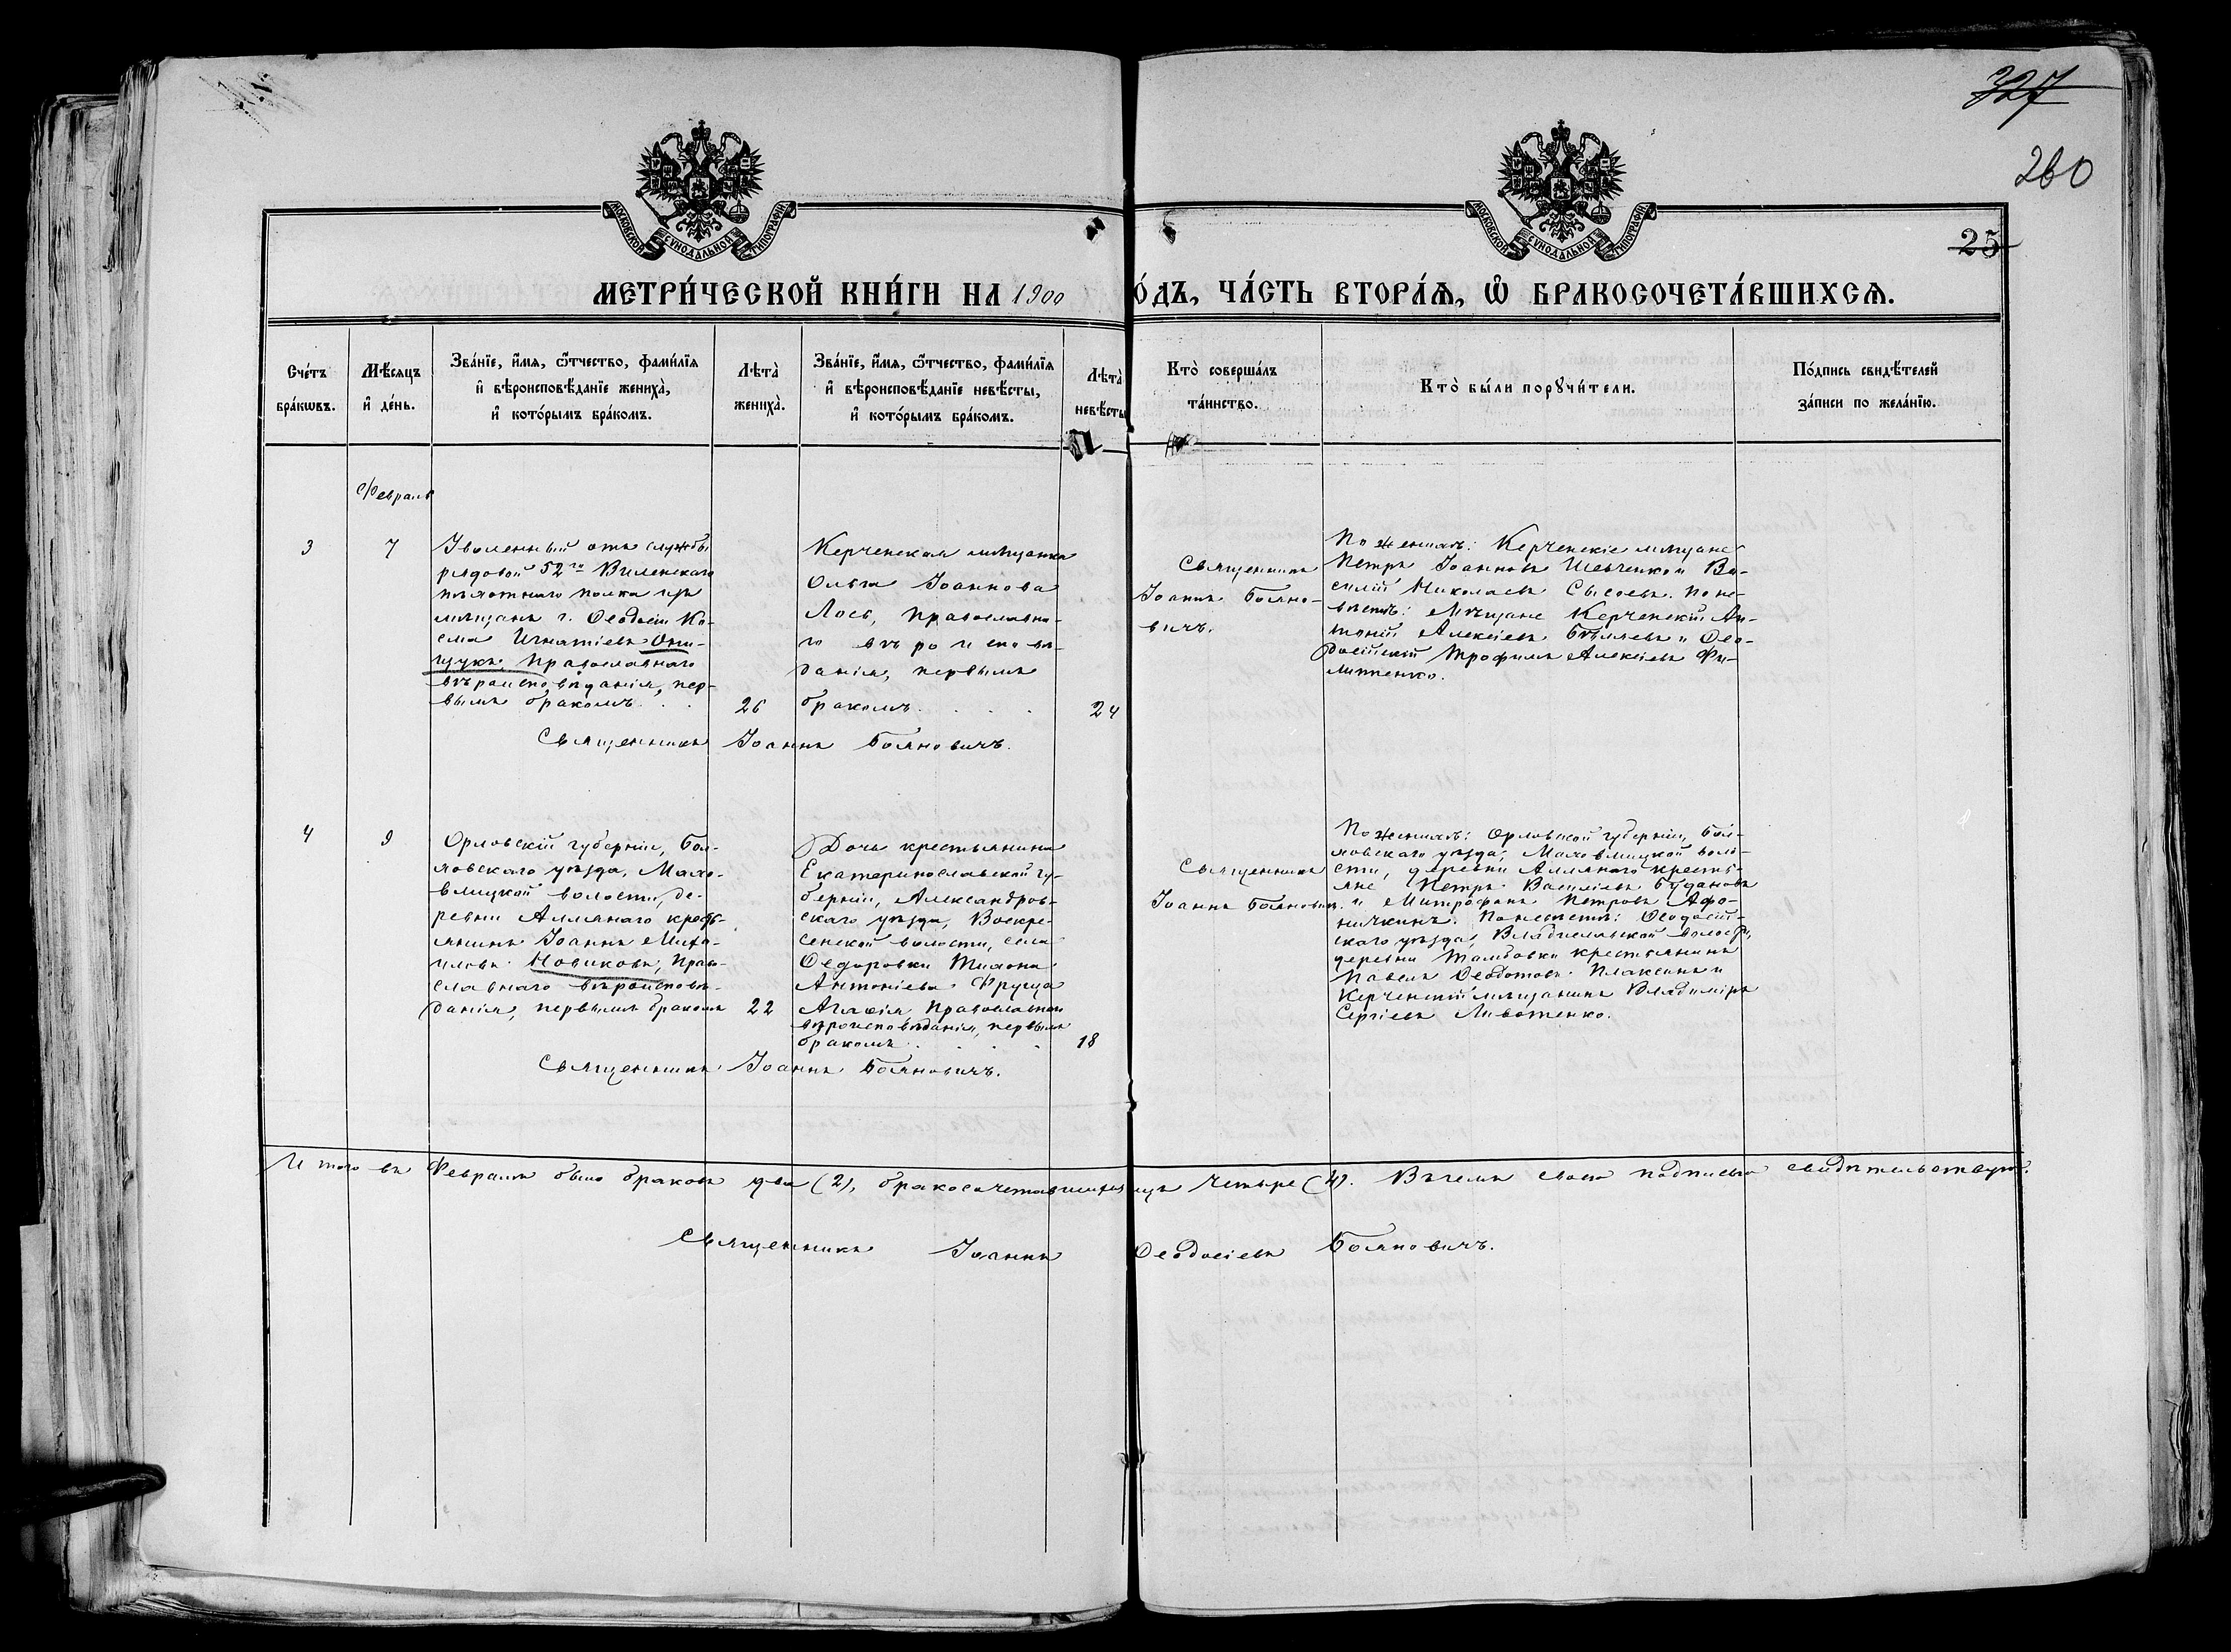 327
260
25
МОСКОВСКОЙ СѴНОДАЛЬНОЙ ТИПОГРАФІИ.
МОСКОВСКОЙ СѴНОДАЛЬНОЙ ТИПОГРАФІИ.
МЕТРИ́ЧЕСКОЙ КНИ́ГИ НА 1900 О́ДЪ, ЧА́СТЬ ВТОРА́Ѧ, Ѽ БРАКОСОЧЕТА́ВШИХСѦ.
Сче́тъ
бра́кѡвъ.
Мѣ́сяцъ
и҆ де́нь.
Зва́нїе, и҆́мя, ѻ҆́тчество, фами́лїя
и҆ вѣроисповѣ́данїе жениха̀,
и҆ кото́рымъ бра́комъ.
Лѣта̀
жениха̀.
Зва́нїе, и҆́мя, ѻ҆́тчество, фами́лїя
и҆ вѣроисповѣ́данїе невѣ́сты,
и҆ кото́рымъ бра́комъ.
Лѣта̀
невѣ́сты
Кто̀ соверша́лъ
та́инство.
Кто̀ бы́ли порꙋчи́тели.
По́дпись свидѣ́телей
за́писи по жела́нїю.
Февраль
3
7
Уволенный отъ службы
рядовой 52го Виленскаго
пѣхотнаго полка изъ
мѣщанъ г. Ѳеодосіи Ко-
сма Игнатіевъ Они-
щукъ, Православнаго
вѣроисповѣданія, пер-
вымъ бракомъ
26
Керченская мѣщанка
Ольга Іоаннова
Лось, Православна-
го вѣроисповѣ-
данія, первымъ
бракомъ
24
Священникъ
Іоаннъ Бояно-
вичъ.
По женихѣ: Керченскіе мѣщане
Петръ Іоанновъ Шевченко и Ва-
силій Николаевъ Сысоевъ. По не-
вѣстѣ: Мѣщане Керченскій Ан-
тоній Алексіевъ Бѣляевъ и Ѳео-
досійскій Трофимъ Алексіевъ Фи-
липпенко.
Священникъ Іоаннъ Бояновичъ.
4
9
Орловскій губерніи, Бол-
ховскаго уѣзда,
волости, де-
ревни кресть-
янинъ Іоаннъ Миха-
иловъ Новиковъ, Право-
славнаго вѣроисповѣ-
данія, первымъ бракомъ
22
Дочь крестьянина
Екатеринославской гу-
берніи, Александров-
скаго уѣзда, Воскре-
сенской волости, села
Ѳедоровки Тихона
Антоніева
Агафія Православнаго
вѣроисповѣданія, первымъ
бракомъ
18
Священникъ
Іоаннъ Бояновичъ.
По женихѣ: Орловской губерніи, Бол-
ховскаго уѣзда, воло-
сти, деревни кресть-
яне Петръ Василіевъ Будановъ
и Митрофанъ Петровъ Афо-
ничкинъ. По невѣстѣ: Ѳеодосій-
скаго уѣзда, Владиславской волости,
деревни крестьянинъ
Павелъ Ѳеодотовъ Плаксинъ и
Керченскій мѣщанинъ Владиміръ
Сергіевъ
Священникъ Іоаннъ Бояновичъ.
Итого въ Февралѣ было браковъ два (2), бракосочетавшихся лицъ четыре (4). Въ чемъ своею подписью свидѣтельствую:
Священникъ Іоаннъ Ѳеодосіевъ Бояновичъ.